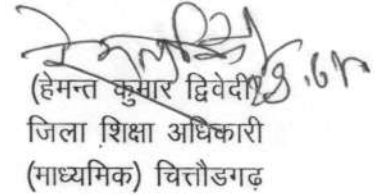 (हेमन्त कुमार द्विवेदी)
जिला शिक्षा अधिकारी
(माध्यमिक) चित्तौडगढ़